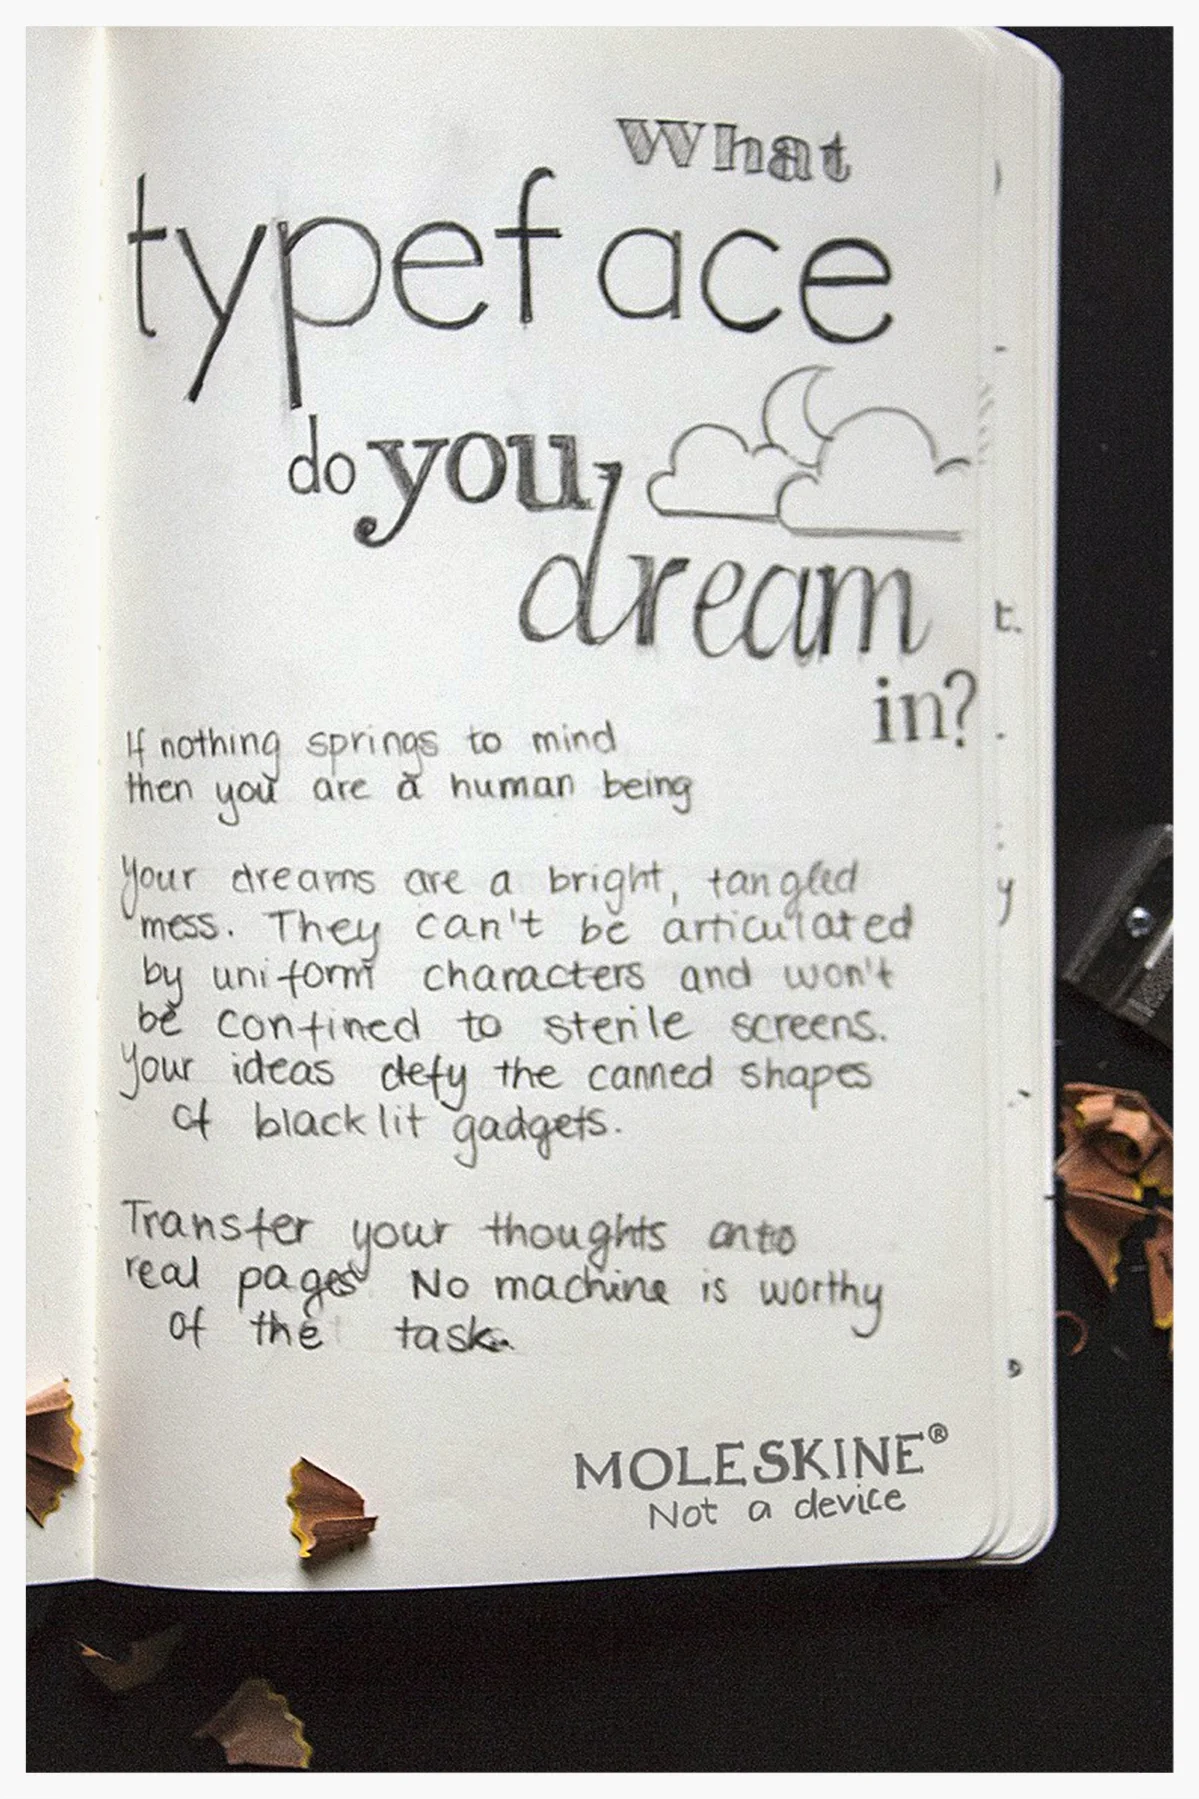 What
typeface
do you
dream
in?
If nothing springs to mind
then you are a human being
Your dreams are a bright, tangled
mess. They can't be articulated
by uniform characters and won't
be confined to sterile screens.
Your ideas defy the canned shapes
of blacklit gadgets.
Transfer your thoughts onto
real pages No machine is worthy
of the task.
MOLESKINE®
Not a device